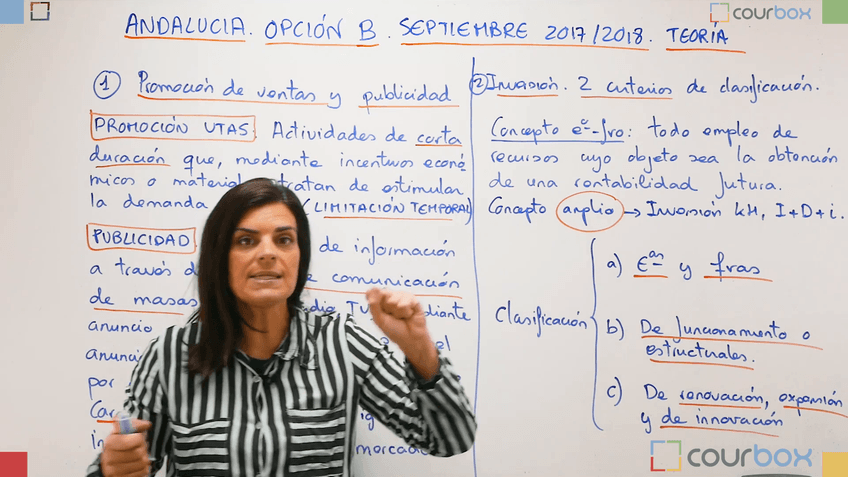 courbox
ANDALUCIA. OPCIÓN B. SEPTIEMBRE 2017/2018. TEORÍA
① Promoción de ventas y publicidad
PROMOCIÓN VTAS Actividades de corta
duración que, mediante incentivos econó
micos o material tratan de estimular
la demanda (LIMITACIÓN TEMPORAL)
PUBLICIDAD de información
a través de comunicación
de masas TV mediante
anuncio
anunci el
por
Ca
in mercado
② Inversión. 2 criterios de clasificación.
Concepto eº-fro: todo empleo de
recursos cuyo objeto sea la obtención
de una rentabilidad futura.
Concepto amplio → Inversión KH, I+D+i.
Clasificación
a) Eªs y fras
b) De funcionamiento o
estructurales.
c) De renovación, expansión
y de innovación
courbox